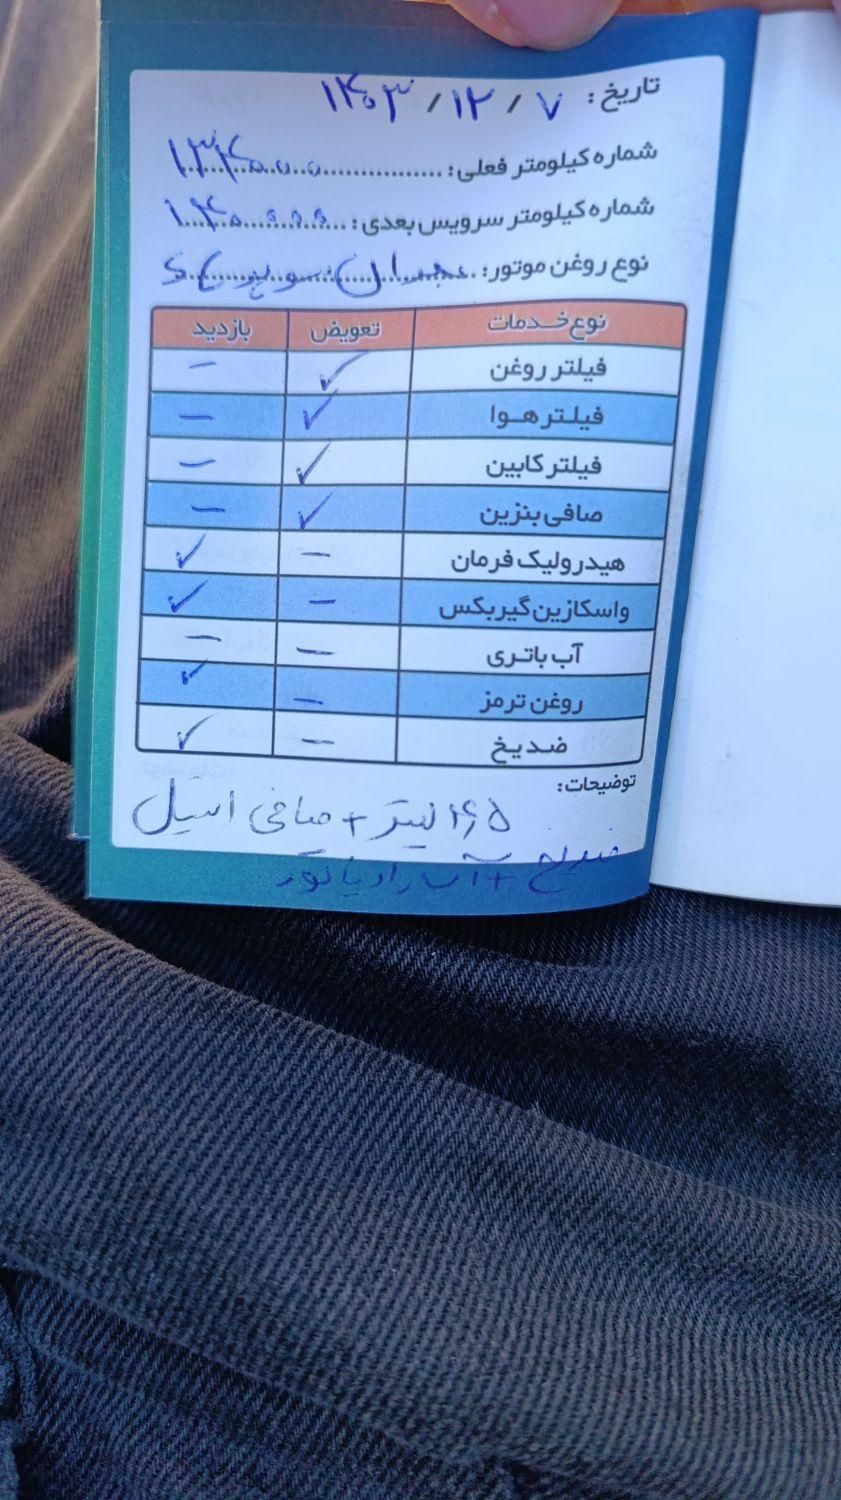 تاریخ : ۱۴۰۳/۱۲/۷
شماره کیلومتر فعلی: ۱۳۴۰۰۰
شماره کیلومتر سرویس بعدی: ۱۴۰۰۰۰
نوع روغن موتور:
نوع خدمات تعویض بازدید
فیلتر روغن ✓ –
فیلتر هوا ✓ –
فیلتر کابین ✓ –
صافی بنزین ✓ –
هیدرولیک فرمان – ✓
واسکازین گیربکس – ✓
آب باتری – –
روغن ترمز – ✓
ضد یخ – ✓
توضیحات:
۴٫۵ لیتر + صافی اصیل
ضدیخ + آب رادیاتور